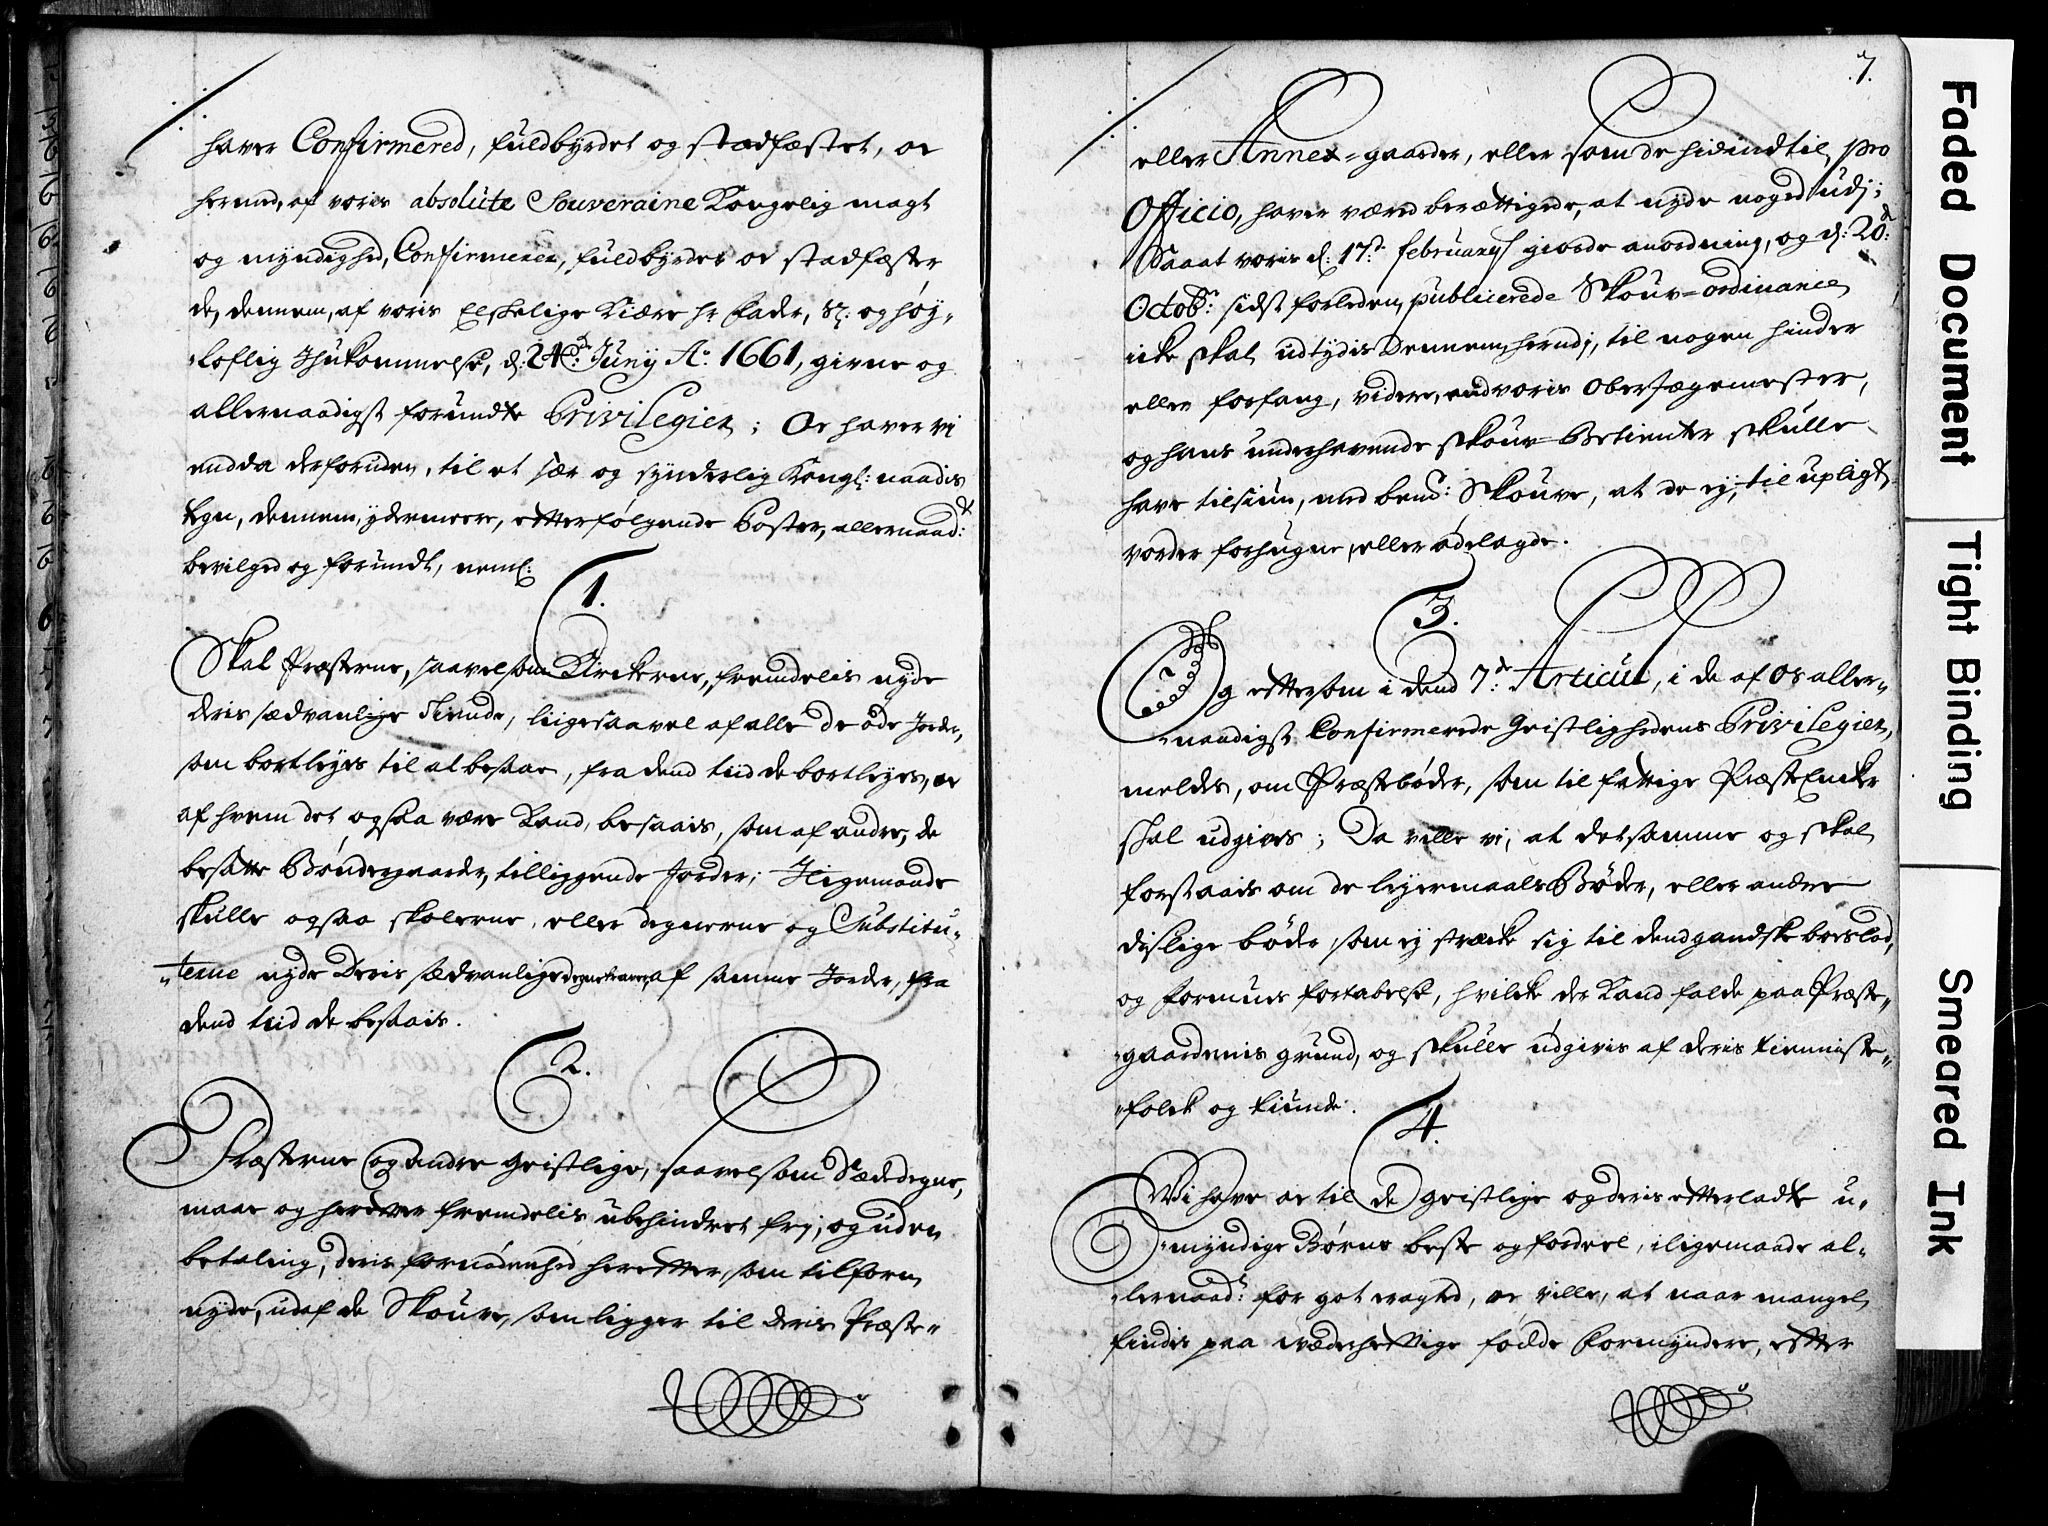 haver Confirmered, fuldbyrdet og stadfæstet, oc
hermed, af voris absolute Souveraine Kongelig magt
og myndighed, Confirmerer, fuldbyrder oc stadfæster
de, dennem, af voris Elskelige Kiære hr Fader, S: og høy„
„loflig Ihukommelse, d: 24de: Juny Ao 1661, givne og
allernaadigst forundte Privilegier; Oc haver vi
endda derforuden, til et sær og synderlig Kongl: naadis
tegn, dennem, ydermeere, efterfølgende Poster, allernaadt:
bevilged og forundt, neml:
1.
Skal Præsterne, saavelsom Kirckerne, fremdelis nyde
deris sædvanlige tiende, liigesaavel af alle de øde Jorder,
som bortleyes til at besaae, fra dend tiid de bortleyes, oc
af hvem det ogsaa være kand, besaais, som af andre, de
besatte Bøndergaarde, tilliggende Jorder; Iligemaade
skulle ogsaa skolerne, eller degnerne og Substitu„
„terne nyde Deris sædvanlige degnetraver, af samme Jorder, fra
dend tiid de besaais.
2.
Præsterne og andre Geistlige, saavelsom Sædedegne,
maae og herefter fremdelis ubehindret frj, og uden
betaling, deris fornødenhed herefter, som tilforn,
nyde, udaf de Skouve, som ligger til deris Præste„
7.
eller Annex=gaarder, eller som de hidindtil, pro
Officio, haver været berættigede, at nyde noget udj;
Saaat voris d: 17de: february giorde anordning, og d: 20de:
Octobr: sidst forleden, publicerede Skouv=ordinance
icke skal udtydis Dennem, herudj, til nogen hinder
eller forfang, videre, end voris Oberjægemester,
og hans underhavende skouv=Betienter skulle
have tilsiun, med bemt: Skouve, at de ej, til upligt,
vorder forhugne, eller ødelagde.
3.
Og eftersom i dend 7de: Articul, i de af os aller„
„naadigst Confirmerede Geistlighedens Privilegier,
meldes, om Præstebøder, som til fattige PræstEncker
skal udgives; Da ville vi, at detsamme og skal
forstaais om de leyermaals Bøder, eller andre
dislige bøder, som ej strække sig til dend gandske boeslod,
og formues fortabelse, hvilcke der kand falde paa Præste„
„gaardenis grund, og skulle udgivis af deris tienniste„
„folck og tiunde.
4.
Wi have oc til de Geistlige og deris efterladte u„
„myndige Børns beste og fordeel, iligemaade al„
„lernaadt: for got eragted, oc ville, at naar mangel
findis paa vederheftige fødde Formyndere, efter
Faded Document
Tight Binding
Smeared Ink